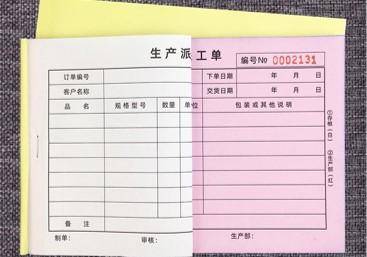 生产派工单
编号№ 0002131
订单编号 下单日期 年 月 日
客户名称 交货日期 年 月 日
品名 规格型号 数量 单位 包装或其他说明
备注
制单: 审核: 生产部:
①存根(白) ②生产部(红)